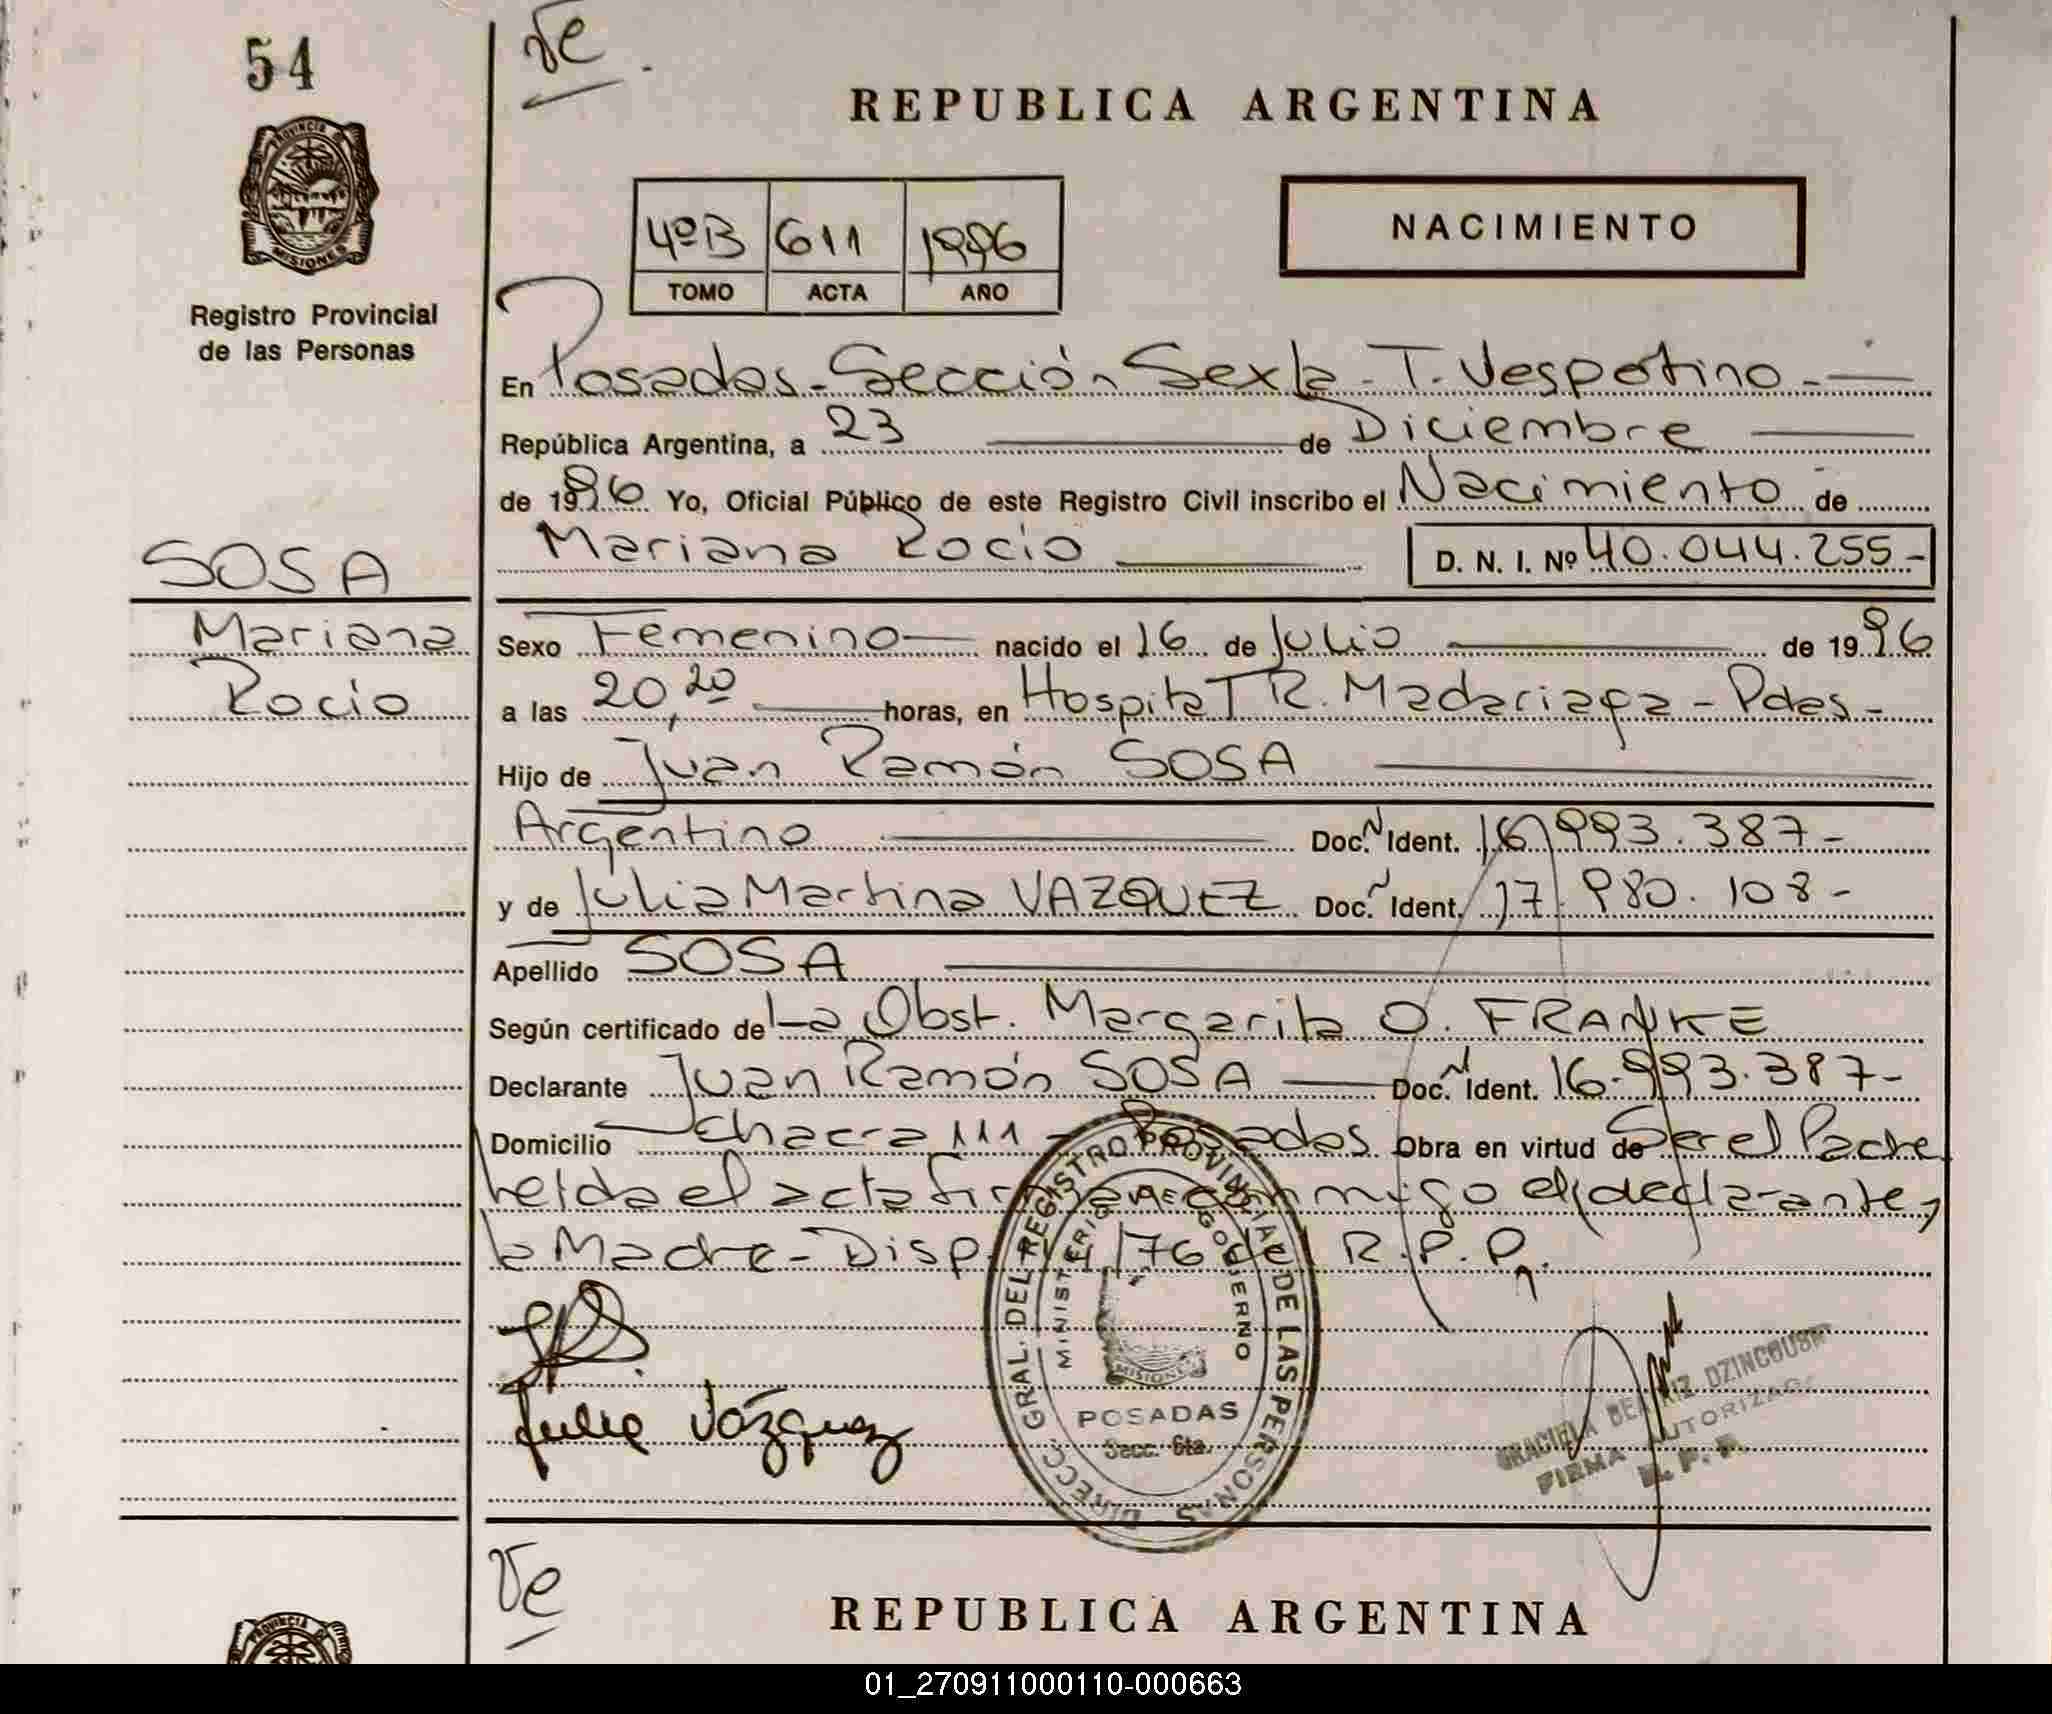 54
Ve
REPUBLICA ARGENTINA
PROVINCIA DE
MISIONES
Registro Provincial
de las Personas
4ºB 611 1996
TOMO ACTA AÑO
NACIMIENTO
En Posadas - Sección Sexta - T. Vespertino -
República Argentina, a 23 de Diciembre
de 1996 Yo, Oficial Público de este Registro Civil inscribo el Nacimiento de
Mariana Rocio D. N. I. Nº 40.044.255-
SOSA
Mariana
Rocio
Sexo Femenino nacido el 16 de Julio de 1996
a las 20,20 horas, en Hospital R. Madariaga - Pdas -
Hijo de Juan Ramón SOSA
Argentino Doc. Ident. 16.993.387-
y de Julia Martina VAZQUEZ Doc. Ident. 17.980.108-
Apellido SOSA
Según certificado de La Obst. Margarita O. FRANKE
Declarante Juan Ramón SOSA Doc. Ident. 16.993.387-
Domicilio chacra 111 - Posadas Obra en virtud de Ser el Padre
leida el acta conmigo el declarante,
la Madre - Disp. /76 de R.P.P.
Julia Vázquez
DIRECC. GRAL. DEL REGISTRO PROVINCIAL DE LAS PERSONAS
MINISTERIO DE GOBIERNO
MISIONES
POSADAS
Secc. 6ta.
GRACIELA BEATRIZ
FIRMA AUTORIZADA
R. P. P.
Ve
REPUBLICA ARGENTINA
PROVINCIA
01_270911000110-000663